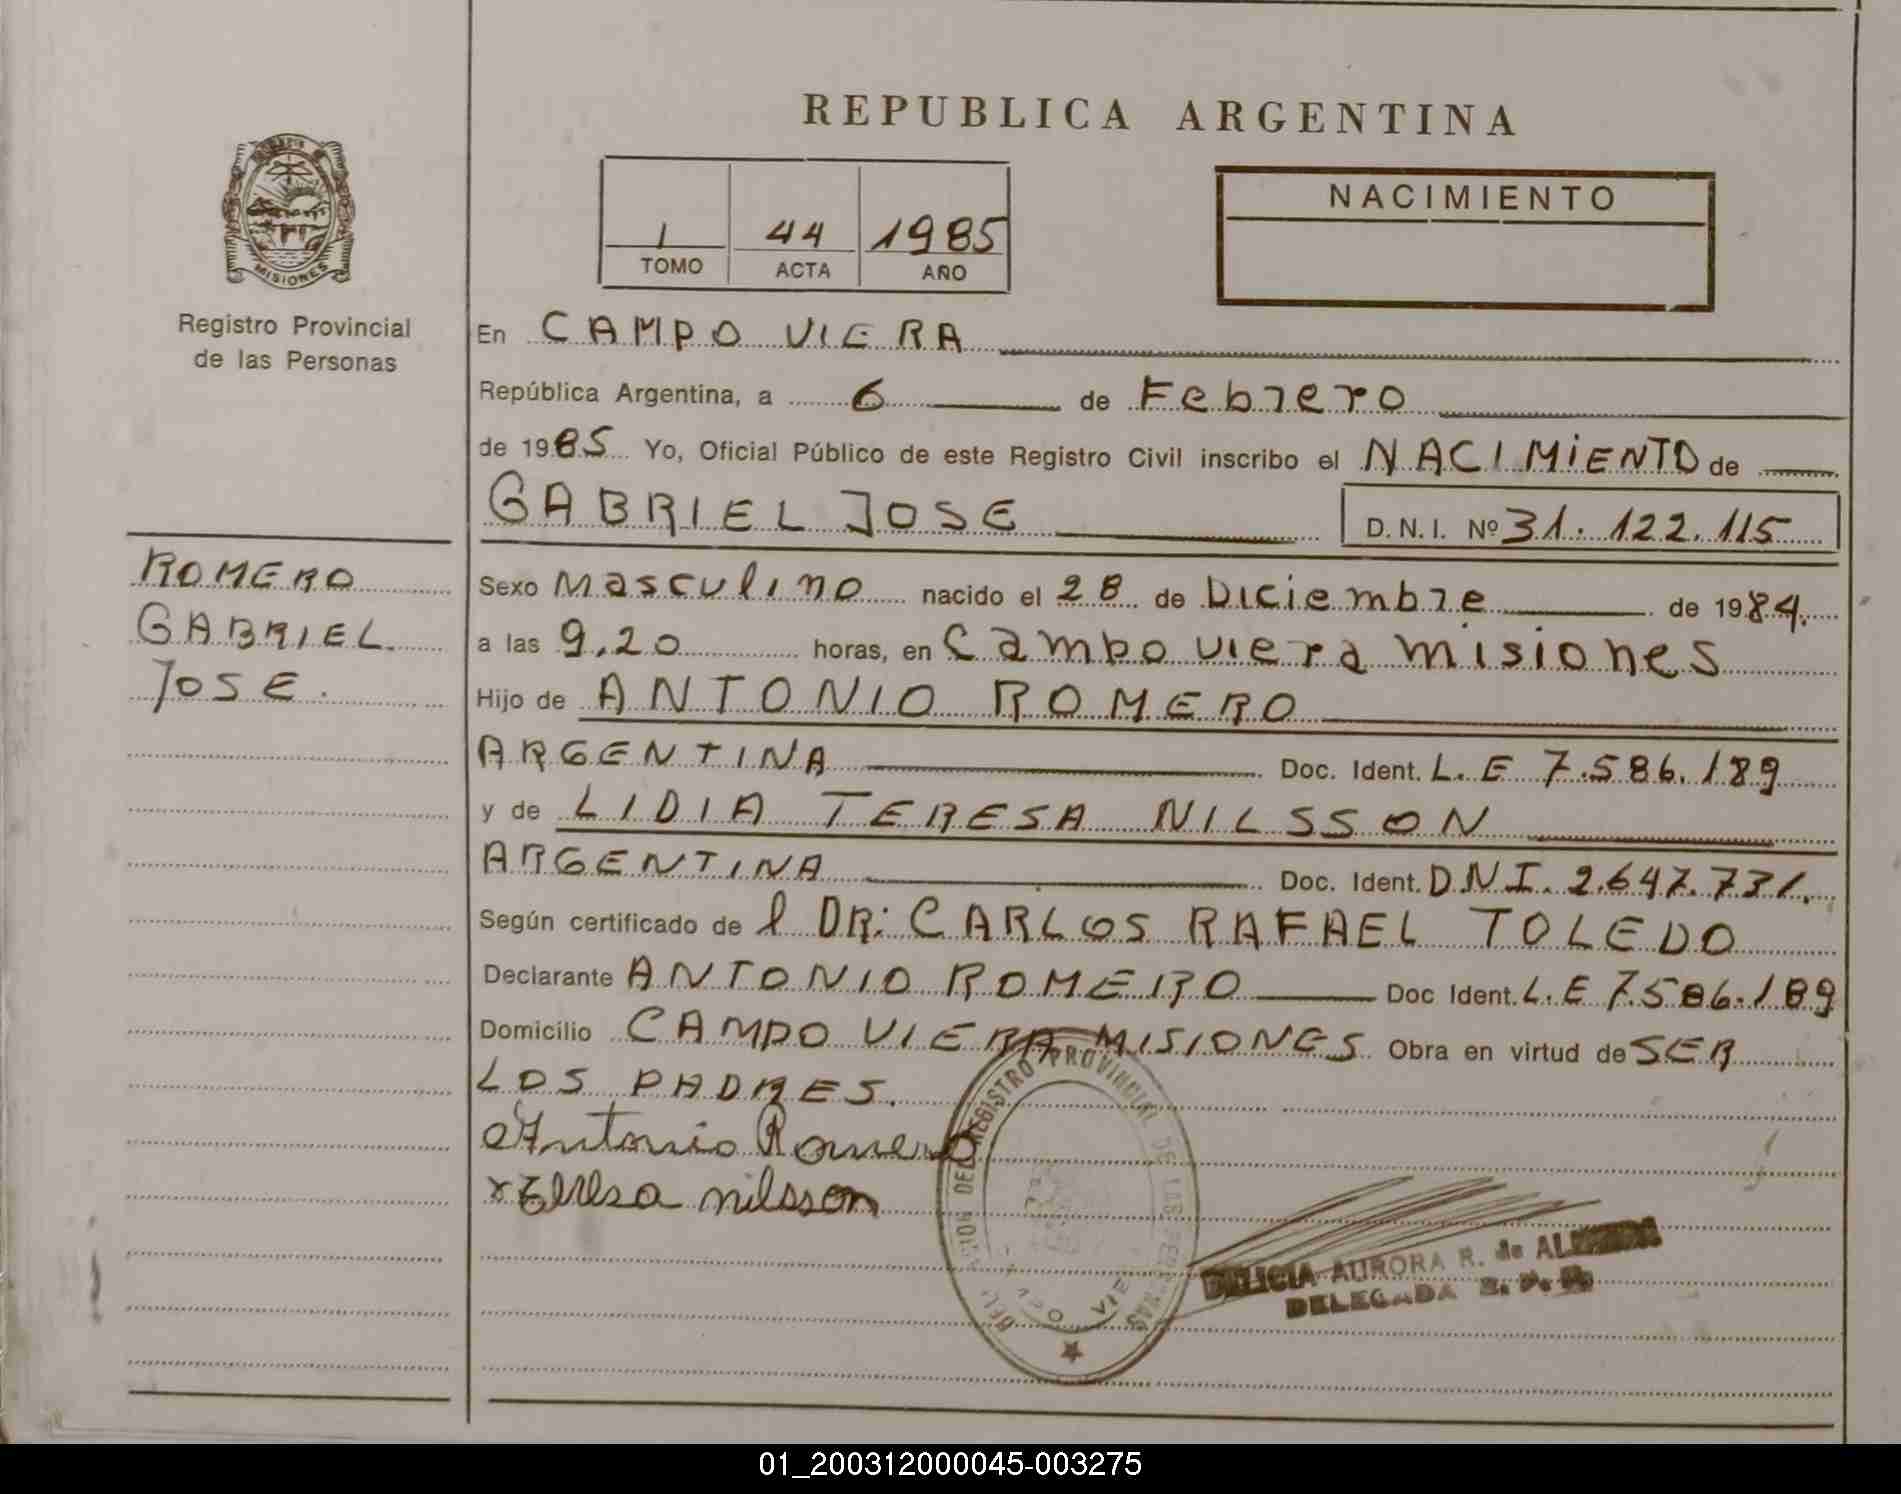 REPUBLICA ARGENTINA
MISIONES
Registro Provincial
de las Personas
1 44 1985
TOMO ACTA AÑO
NACIMIENTO
En CAMPO VIERA
República Argentina, a 6 de Febrero
de 1985 Yo, Oficial Público de este Registro Civil inscribo el NACIMIENTO de
GABRIEL JOSE D.N.I. Nº 31.122.115
ROMERO
GABRIEL
JOSE.
Sexo Masculino nacido el 28 de Diciembre de 1984.
a las 9,20 horas, en Campo viera misiones
Hijo de ANTONIO ROMERO
ARGENTINA Doc. Ident. L.E 7.586.189
y de LIDIA TERESA NILSSON
ARGENTINA Doc. Ident. DNI. 2.647.731.
Según certificado de l DR: CARLOS RAFAEL TOLEDO
Declarante ANTONIO ROMERO Doc Ident. L.E 7.586.189
Domicilio CAMPO VIERA MISIONES Obra en virtud de SER
LOS PADRES.
Antonio Romero
x Teresa nilsson
REGISTRO PROVINCIAL DE LAS PERSONAS
DELICIA AURORA R. de
DELEGADA
01_200312000045-003275